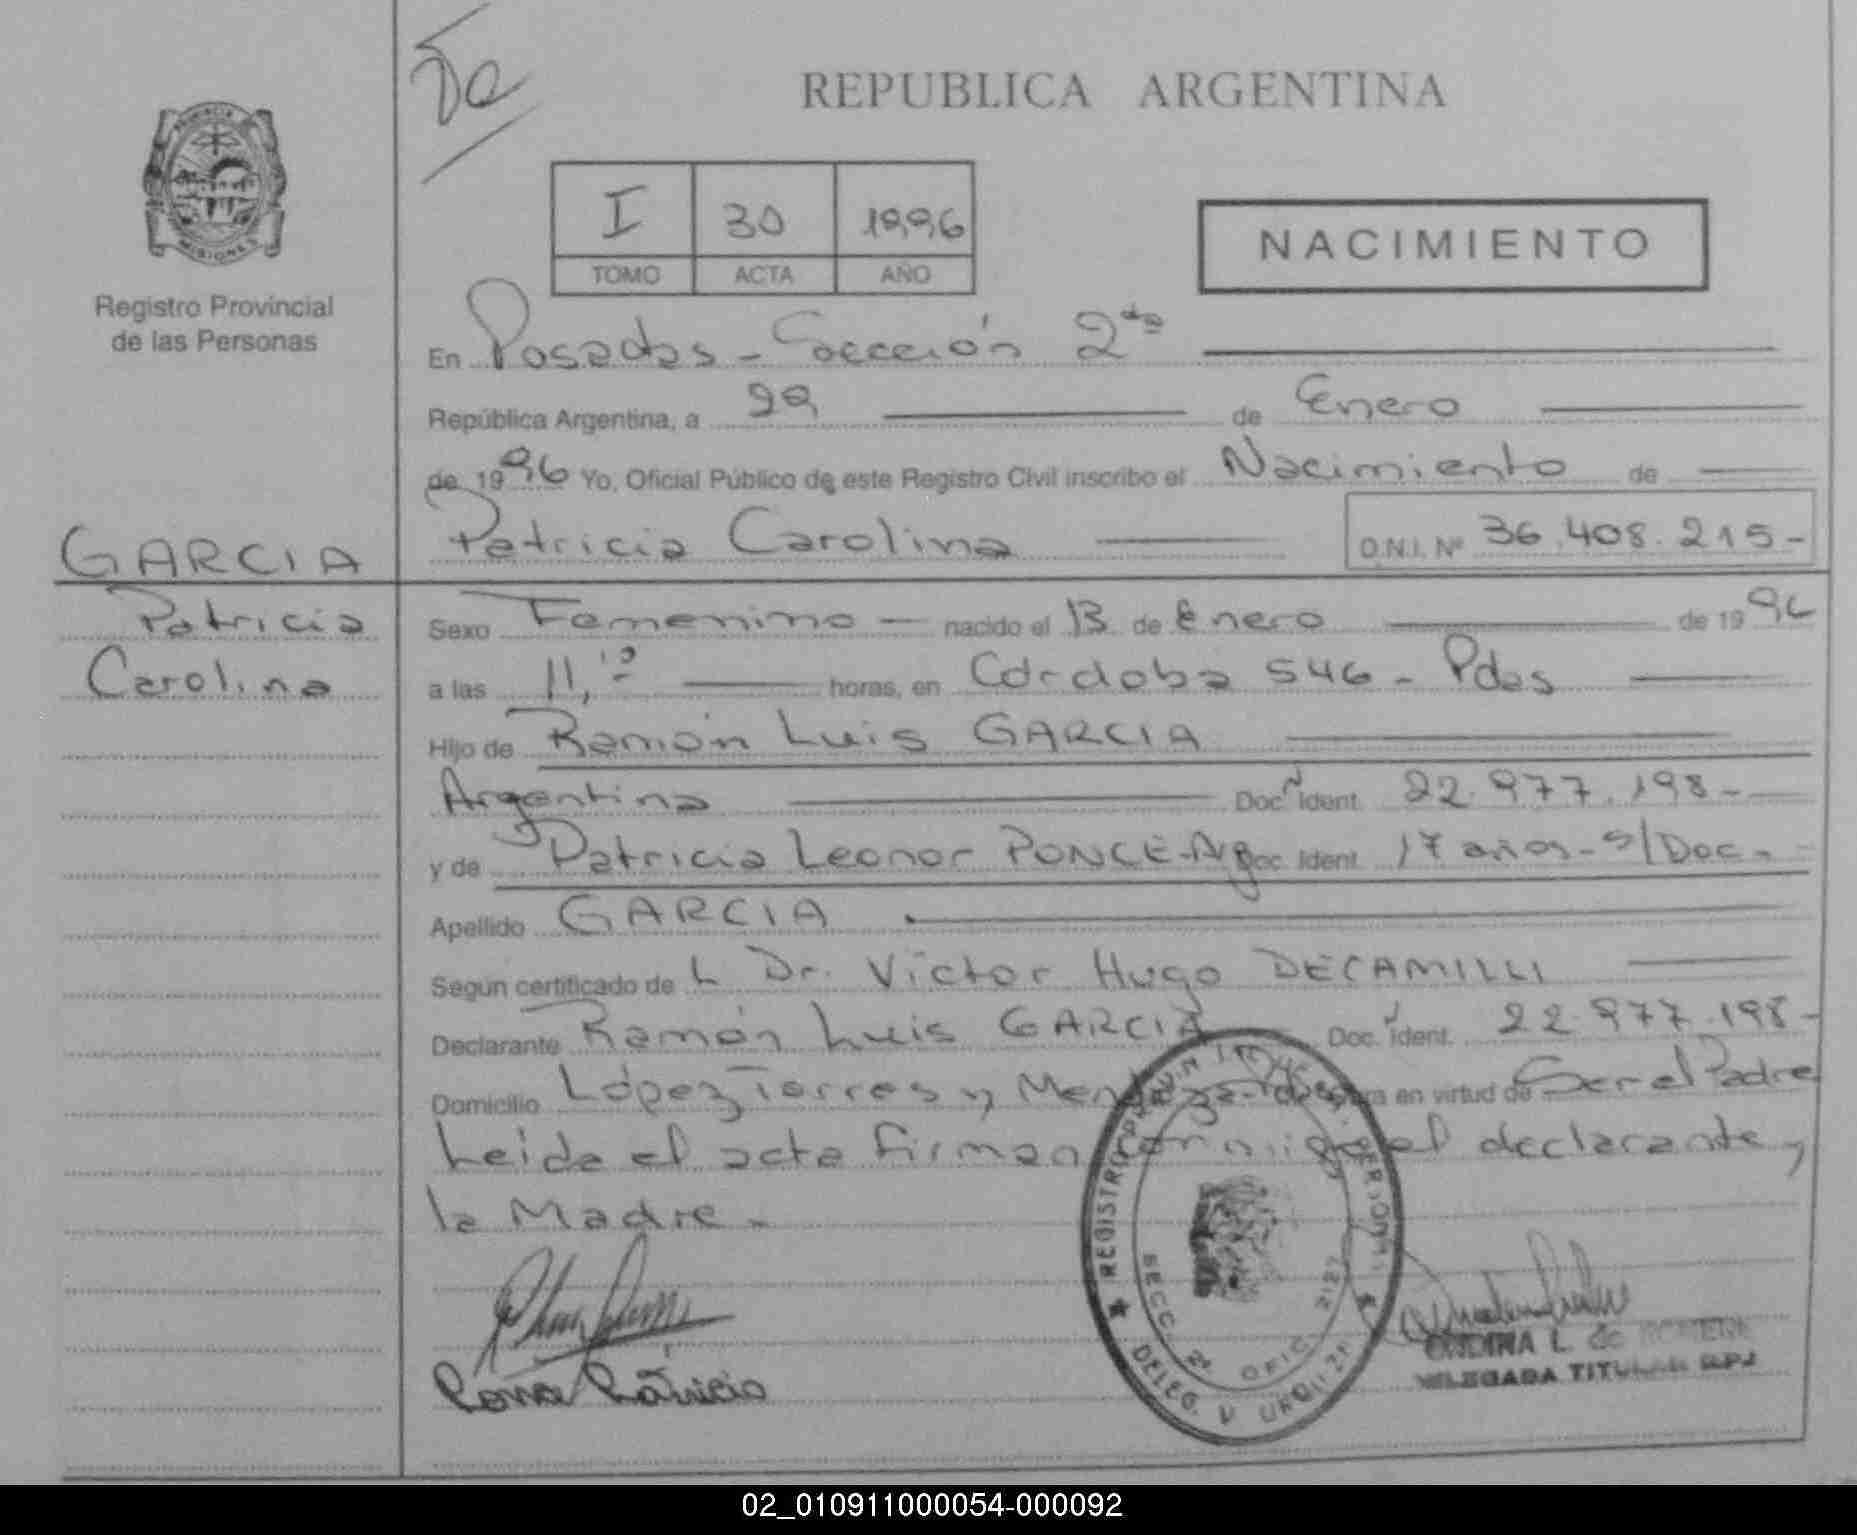 Da
REPUBLICA ARGENTINA
PROVINCIA
MISIONES
Registro Provincial
de las Personas
I 30 1996
TOMO ACTA AÑO
NACIMIENTO
En Posadas - Sección 2da
República Argentina, a 22 de Enero
de 1996 Yo, Oficial Público de este Registro Civil inscribo el Nacimiento de
Patricia Carolina D.N.I. Nº 36.408.215-
GARCIA
Patricia
Carolina
Sexo Femenino - nacido el 13 de Enero de 1996
a las 11,10 horas, en Córdoba 546 - Pdas
Hijo de Ramón Luis GARCIA
Argentina Doc. Ident. 22.977.198-
y de Patricia Leonor PONCE-Arg Doc. Ident. 17 años - s/Doc.-
Apellido GARCIA
Según certificado de L Dr. Víctor Hugo DECAMILLI
Declarante Ramón Luis GARCIA Doc. Ident. 22.977.198-
Domicilio López Torres y en virtud de Ser el Padre
Leida el acta firman conmigo el declarante y
la Madre -
REGISTRO
SECC. 2ª OFIC.
DELEG. V URQUIZA
ONDINA L. de
DELEGADA TITULAR
02_010911000054-000092